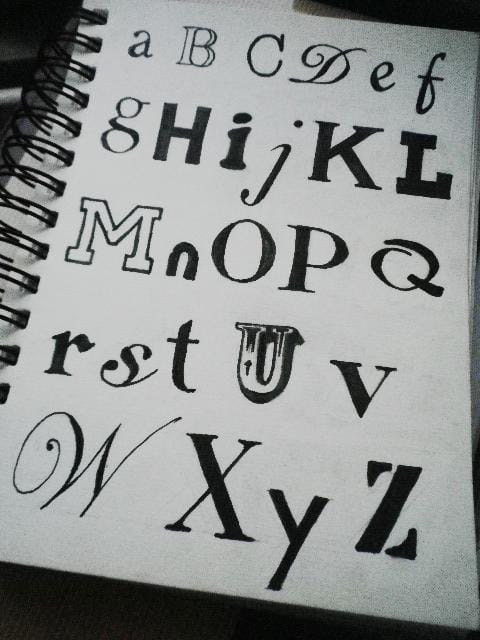 a B C D e f
g H i j K L
M n O P Q
r s t U v
W X y Z